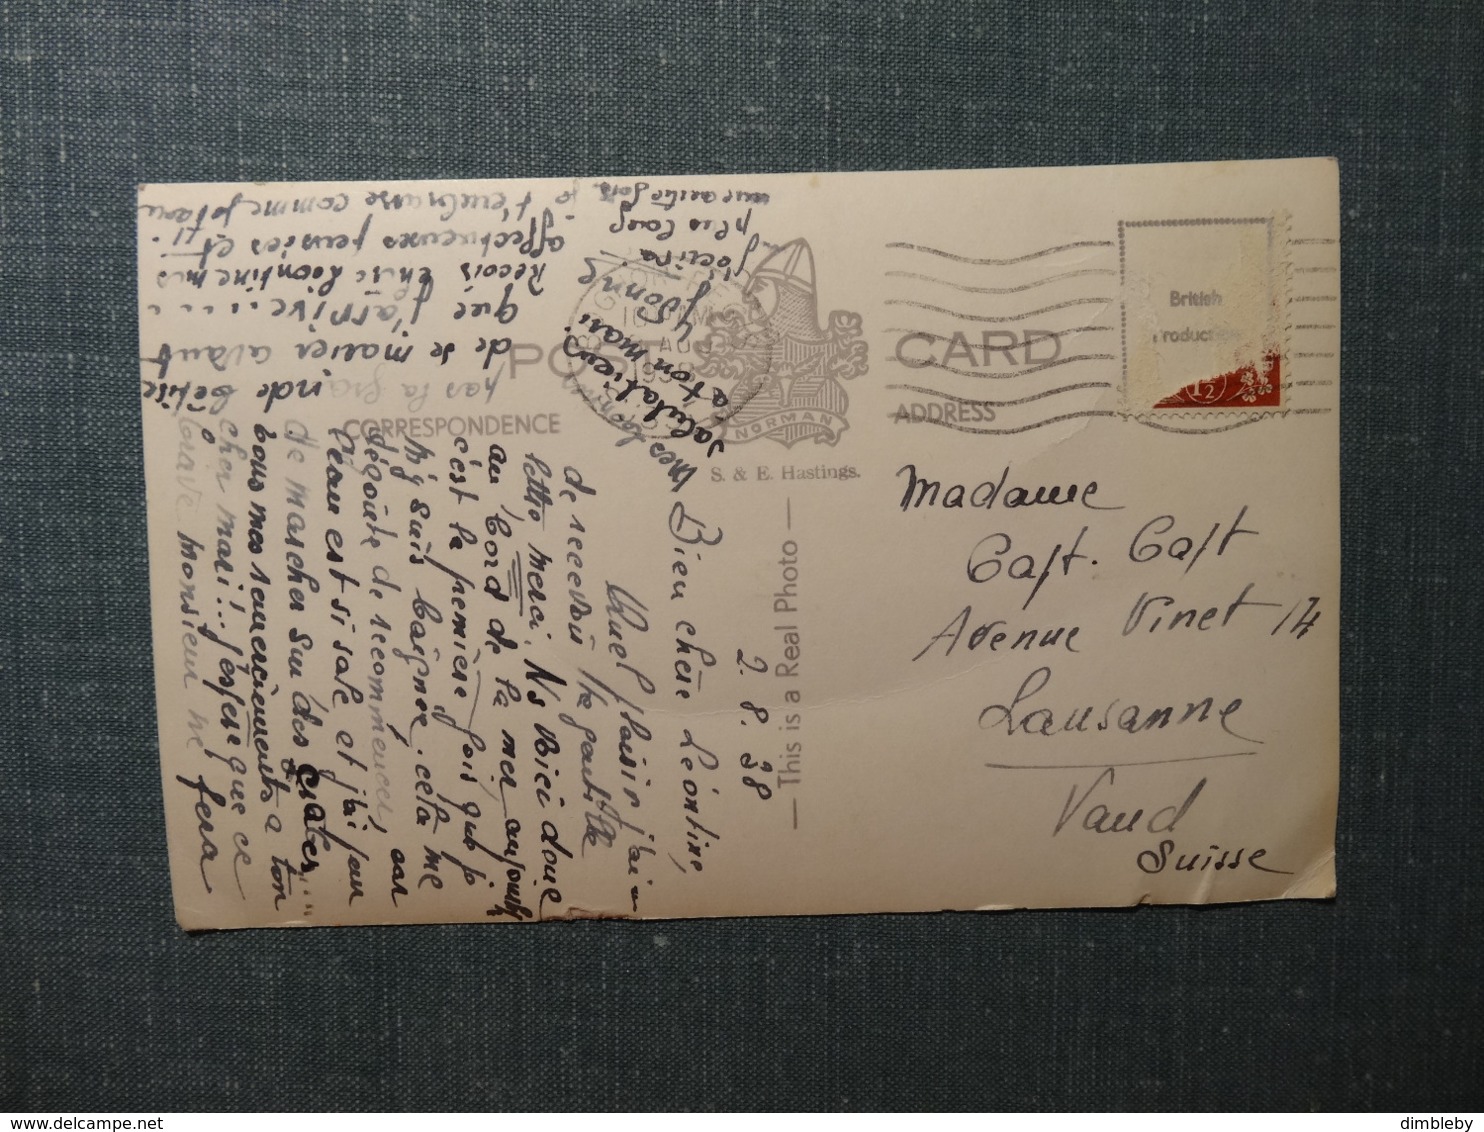 POST CARD
CORRESPONDENCE
ADDRESS
NORMAN
S. & E. Hastings.
— This is a Real Photo —
British
Production
1½
2.8.38
Bien chère Léontine,
Quel plaisir j'ai eu
de recevoir ta gentille
lettre, merci. Ns voici donc
au bord de la mer aujourd'h
c'est la première fois que je
m'y suis baignée. cela me
dégoûte de recommencer, car
l'eau est si sale et j'ai peur
de marcher sur des crabes...
tous mes remerciements à ton
cher mari!... J'espère que ce
brave monsieur ne fera
pas la
bêtise
de se marier avant
que j'arrive.....
Reçois chère Léontine mes
affectueuses pensées et
je t'embrasse comme je t'
mes bonnes
salutations
à ton mari
Yvonne
J'écrirai
plus long
une autre fois
Madame
Capt. Capt
Avenue Vinet 14
Lausanne
Vaud
Suisse
dimbleby